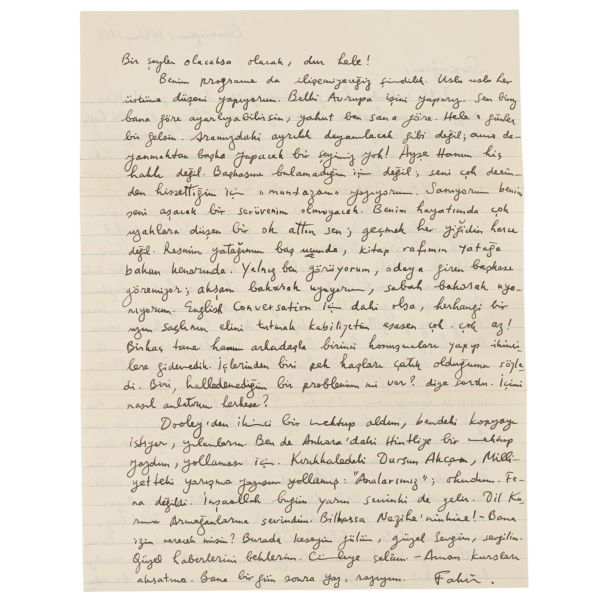 Bir şeyler olacaksa olacak, dur hele!
Benim programa da ilişemiyeceğiz şimdilik. Uslu uslu her
üstüme düşeni yapıyorum. Belki Avrupa işini yaparız. Sen biraz
bana göre ayarlıyabilirsin, yahut ben sana göre. Hele o günler
bir gelsin. Aramızdaki ayrılık dayanılacak gibi değil; ama da-
yanmaktan başka yapacak bir şeyimiz yok! Ayşe Hanım hiç
haklı değil. Başkasını bulamadığım için değil; seni çok derin-
den hissettiğim için "muntazam" yazıyorum. Sanıyorum benim
seni aşacak bir serüvenim olmayacak. Benim hayatımda çok
uzaklara düşen bir ok attın sen; geçmek her yiğidin harcı
değil. Resmin yatağımın baş ucunda, kitap rafımın yatağa
bakan kenarında. Yalnız ben görüyorum, odaya giren başkası
göremiyor; akşam bakarak uyuyorum, sabah bakarak uya-
nıyorum. English Conversation için dahi olsa, herhangi bir
uzun saçlının elini tutmak kabiliyetim esasen çok-çok az!
Birkaç tane hanım arkadaşla birinci konuşmaları yapıp ikinci-
lere gidemedik. İçlerinden biri pek kaşları çatık olduğumu söyle-
di. Biri, halledemediğim bir problemim mi var? diye sordu. İçimi
nasıl anlatırım herkese?
Dooley'den ikinci bir mektup aldım, bendeki kopyayı
istiyor, yılanların. Ben de Ankara'daki Hintliye bir mektup
yazdım, yollaması için. Kırıkkaledeki Dursun Akçam, Milli-
yetteki yarışma yazısını yollamış: "Analarımız"; okudum. Fe-
na değildi. İnşaallah bugün yarın seninki de gelir. Dil Ku-
rumu Armağanlarına sevindim. Bilhassa Nezihe'ninkine! - Bana
izin verecek misin? Burada keseyim gülüm, güzel Sevgim, sevgilim.
Güzel haberlerini beklerim. Cümleye selâm. - Aman kursları
aksatma. Bana bir gün sonra yaz, razıyım. Fakir.